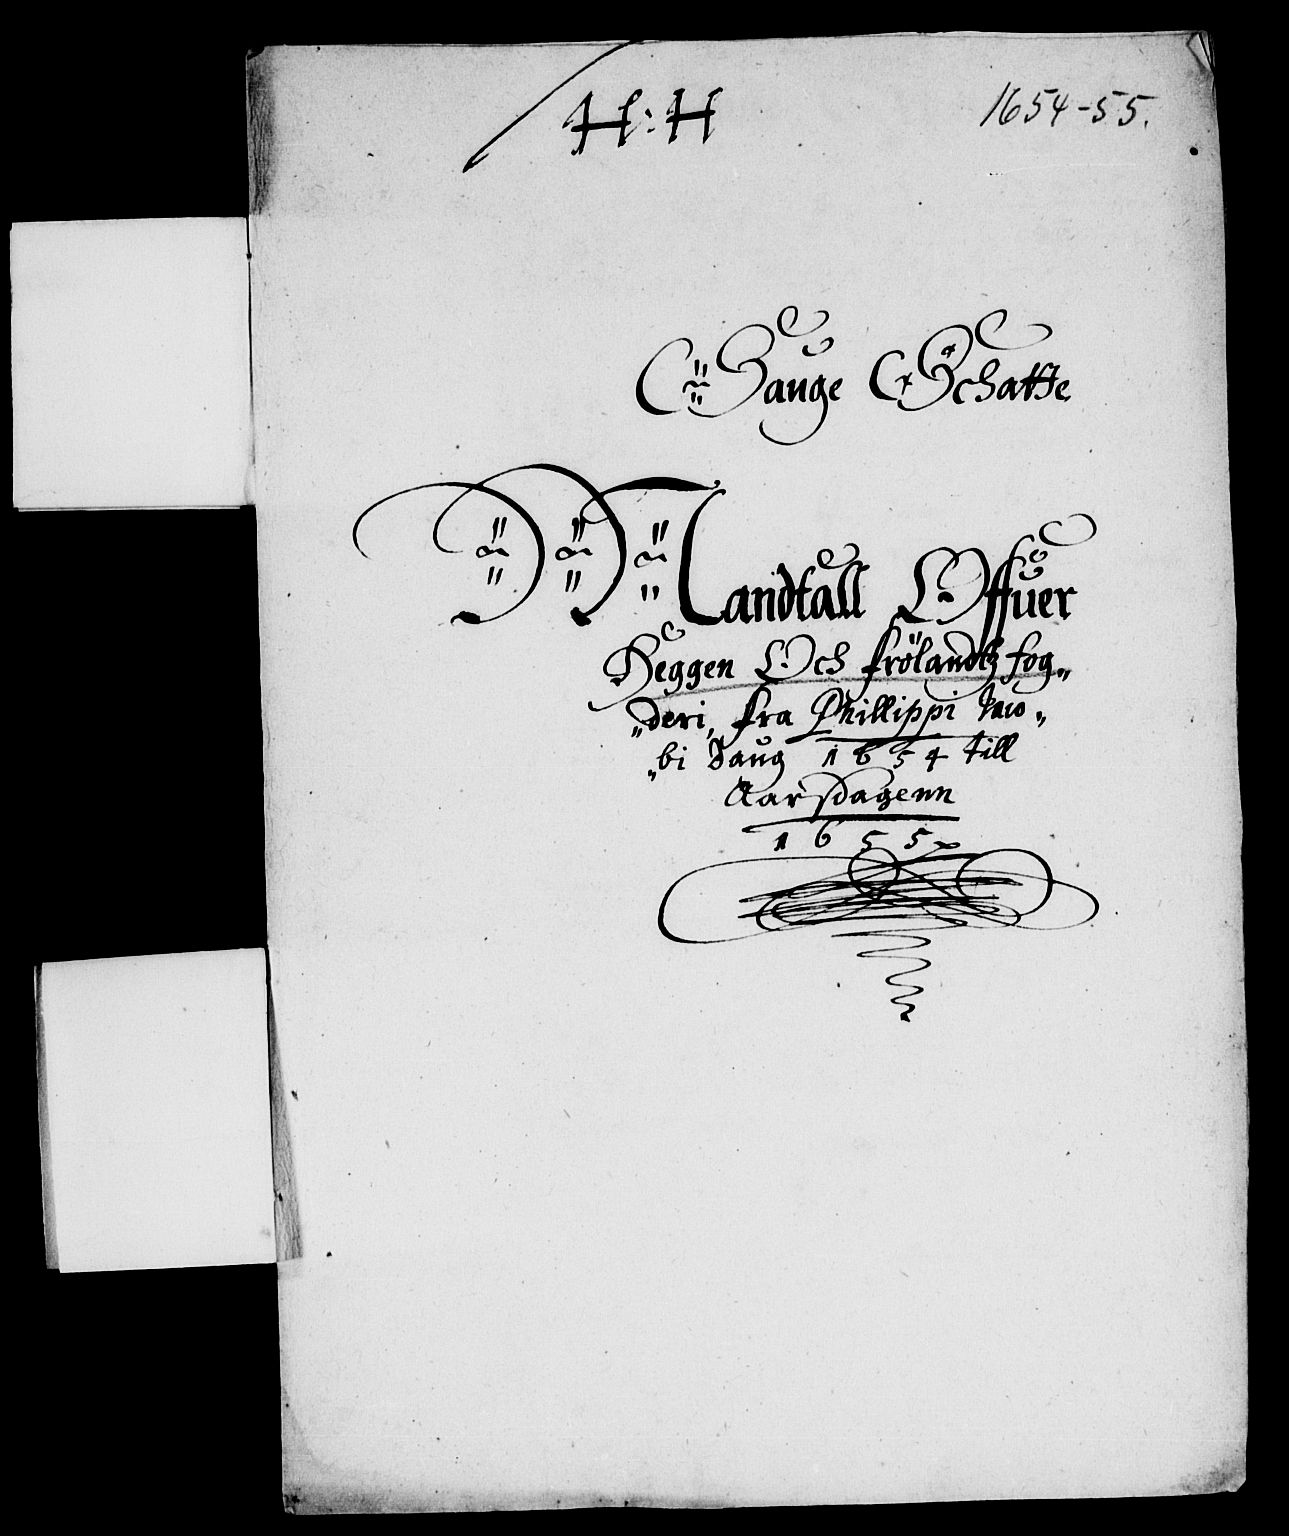 H:H
1654-55.
Sauge Schatte
Mandtall Offuer
Heggen Och frölandtz fog„
„deri, fra Phillippi Jaco„
„bi Daug 1654 till
Aarsdagenn
1655